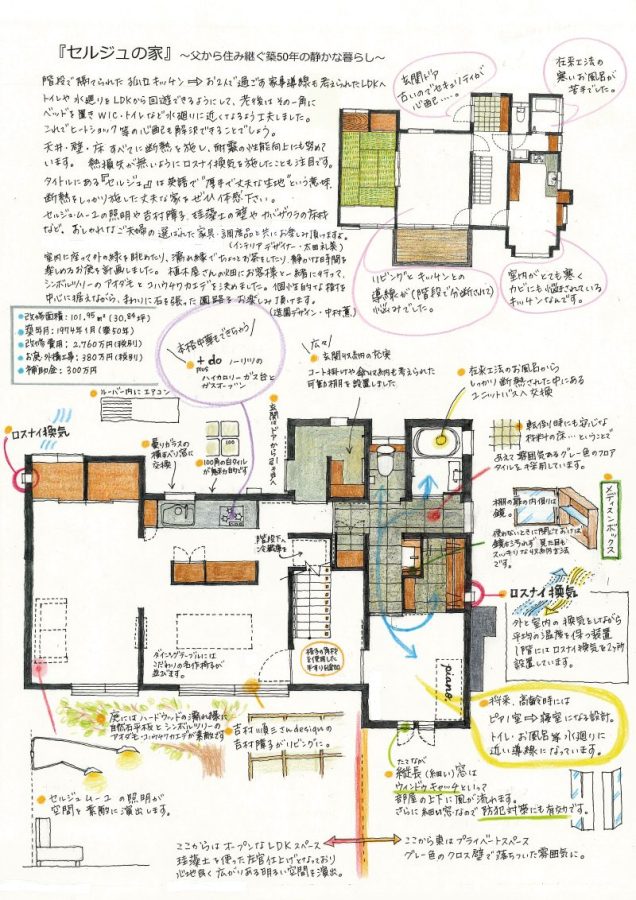 『セルジュの家』 ～父から住み継ぐ築50年の静かな暮らし～
階段で隔てられた孤立キッチン⇒お2人で過ごす家事導線も考えられたLDKへ
トイレや水廻りをLDKから回遊できるようにして、老後はその一角に
ベッドを置きWIC・トイレなど水廻りに近くなるよう工夫しました。
これでヒートショック等の心配も解決できることでしょう。
天井・壁・床すべてに断熱を施し、耐震の性能向上にも努めて
います。熱損失が無いようにロスナイ換気を施したことも注目です。
タイトルにある『セルジュ』は英語で"厚手で丈夫な生地"という意味。
断熱をしっかり施した丈夫な家をぜひ体感下さい。
セルジュ・ムーユの照明や吉村障子、珪藻土の壁やカバザクラの床材
など、おしゃれなご夫婦の選ばれた家具・調度品と共にお楽しみ頂けますよ。
(インテリアデザイナー・太田礼美)
室内に座って外の緑を眺めたり、濡れ縁でちょっとお茶をしたり、静かな時間を
楽しめるお庭を計画しました。植木屋さんの畑にお客様と一緒に行って、
シンボルツリーのアオダモとコハウチワカエデを決めました。個性的な樹を
中心に据えながら、まわりに石を張った園路をお楽しみ頂けます。
(造園デザイン・中村薫)
●改修面積：101.95㎡(30.84坪)
●築年月：1974年1月(築50年)
●改修費用：2,760万円(税別)
●お庭・外構工事：380万円(税別)
●補助金：300万円
玄関ドア
古いのでセキュリティが
心配‥‥。
在来工法の
寒いお風呂が
苦手でした。
リビングとキッチンとの
導線が(階段で分断されて)
悩みでした。
室内がとても寒く
カビにも悩まされている
キッチンなんです。
本格中華もできちゃう
+do
plus
ノーリツの
ハイカロリーガス台と
ガスオーブン
広々
玄関収納の充実
コート掛けや傘収納も考えられた
可動棚を設置しました
在来工法のお風呂から
しっかり断熱された中にある
ユニットバスへ交換
ルーバー内にエアコン
ロスナイ換気
曇りガラスの
横すべり窓に
交換
100
100角の白タイル
が魅力的です
玄関はドアから引き戸へ
転倒時にも安心な
材料の床…ということで
あえて雰囲気あるグレー色のフロア
タイルを採用しています。
棚の扉の内側は
鏡。
使わないときに閉じておけば
鏡も汚れず、見た目も
スッキリな収納方法
です。
メディスンボックス
階段下へ
冷蔵庫を
ロスナイ換気
外と室内の換気をしながら
平均の温度を保つ装置
1階にはロスナイ換気を2ヶ所
設置しています。
ダイニングテーブルには
こだわりの名作椅子が
並びます。
piano
将来、高齢時には
ピアノ室⇒寝室になる設計。
トイレ・お風呂家水廻りに
近い導線になっています。
庭にはハードウッドの濡れ縁に
自然石平板とシンボルツリーの
アオダモ・コハウチワカエデが素敵です
吉村順三さんdesignの
吉村障子がリビングに。
たてなが
縦長(細い)窓は
ウインドウキャッチといって
部屋の上下に風が流れます。
さらに細い窓なので防犯対策にも有効です。
セルジュ・ムーユの照明が
空間を素敵に演出します。
ここからはオープンなLDKスペース
珪藻土を使った左官仕上げとなっており
心地良く広がりある明るい空間を演出。
ここから東はプライベートスペース
グレー色のクロス壁で落ちついた雰囲気に。